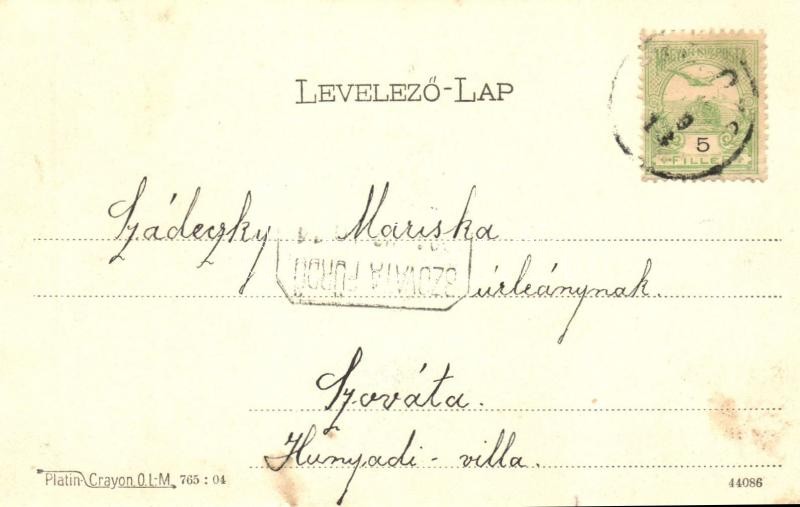 MAGYAR KIR. POSTA
5
FILLÉR
LEVELEZŐ-LAP
Szádeczky Mariska
SZOVÁTA FÜRDŐ
úrleánynak.
Szováta.
Hunyadi - villa.
Platin-Crayon. O.L-M. 765 : 04
44086